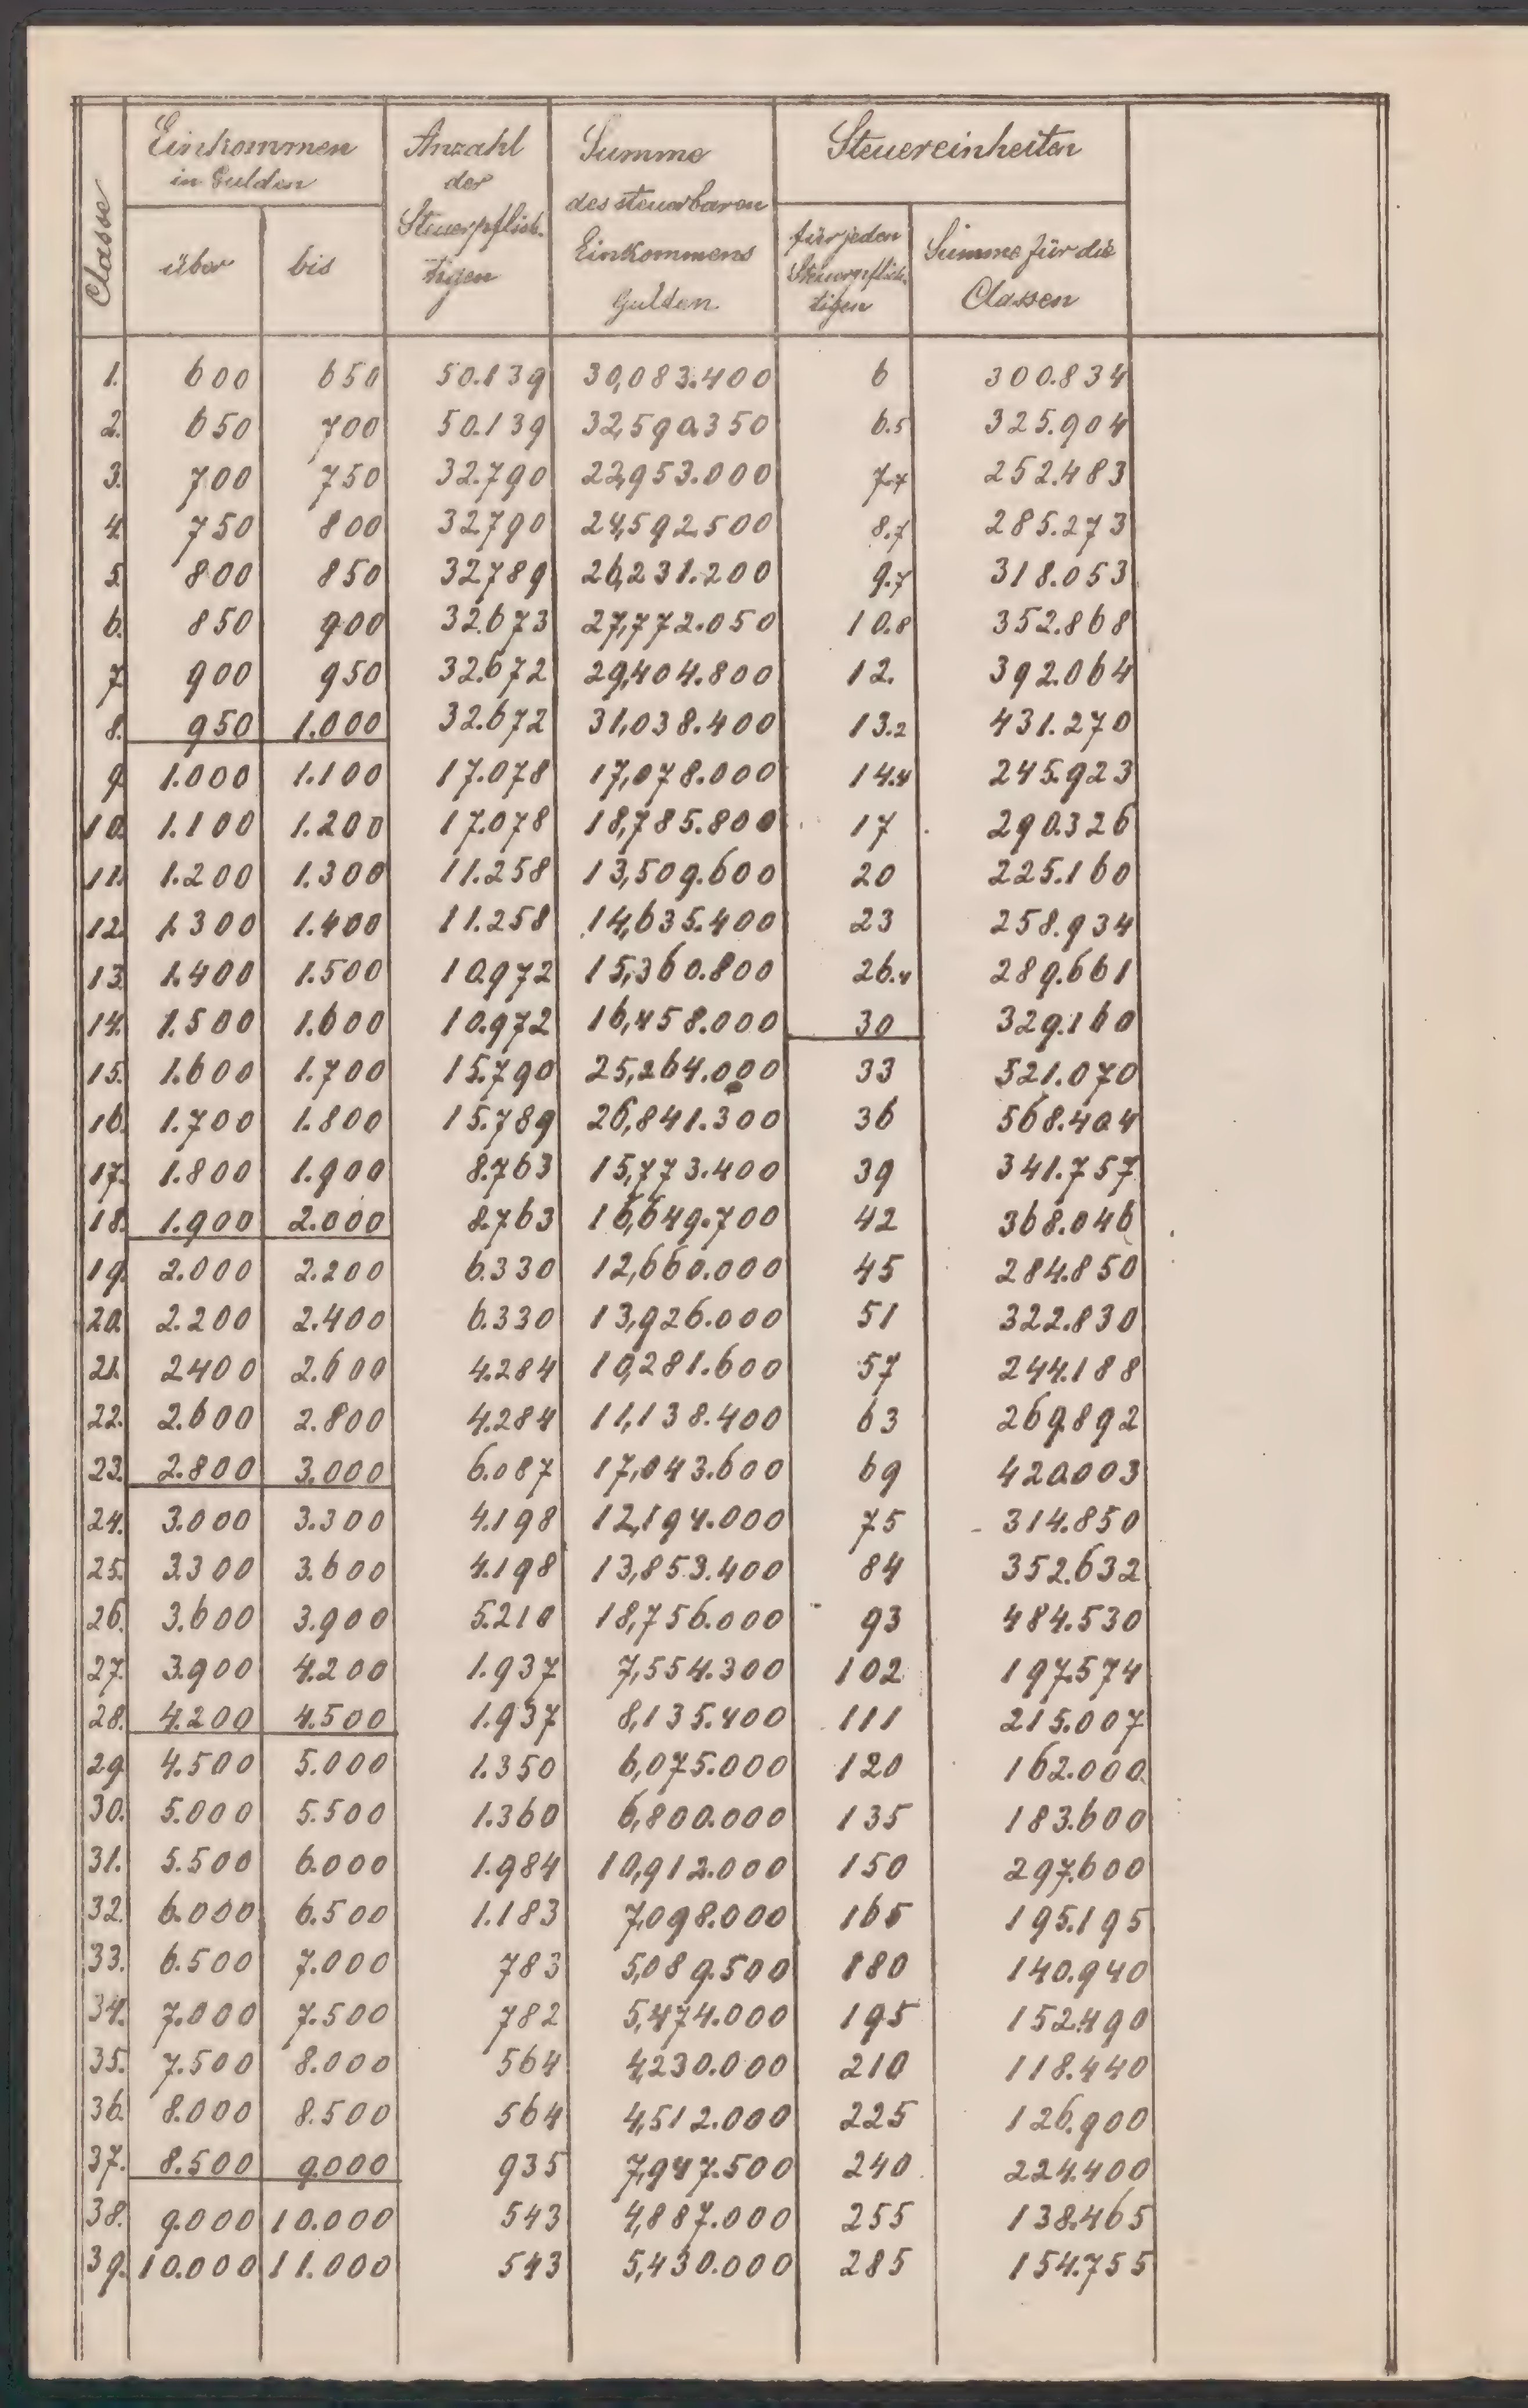 Classe
Einkommen in Gulden
über
bis
Anzahl der Steuerpflich- tigen
Summe des steuerbaren Einkommens Gulden
Steuereinheiten
für jeden Steuerpflich- tigen
Summe für die Classen
1. 600 650 50.139 30,083.400 6 300.834
2. 650 700 50.139 32,590.350 6.5 325.904
3. 700 750 32.790 22,953.000 7.7 252.483
4. 750 800 32790 24,592.500 8.7 285.273
5. 800 850 32789 26,231.200 9.7 318.053
6. 850 900 32.673 27,772.050 10.8 352.868
7. 900 950 32.672 29,404.800 12. 392.064
8. 950 1.000 32.672 31,038.400 13.2 431.270
9. 1.000 1.100 17.078 17,078.000 14.4 245.923
10. 1.100 1.200 17.078 18,785.800 17 290.326
11. 1.200 1.300 11.258 13,509.600 20 225.160
12. 1.300 1.400 11.258 14,635.400 23 258.934
13. 1.400 1.500 10.972 15,360.800 26.4 289.661
14. 1.500 1.600 10.972 16,458.000 30 329.160
15. 1.600 1.700 15.790 25,264.000 33 521.070
16. 1.700 1.800 15.789 26,841.300 36 568.404
17. 1.800 1.900 8.763 15,773.400 39 341.757
18. 1.900 2.000 8.763 16,649.700 42 368.046
19. 2.000 2.200 6.330 12,660.000 45 284.850
20. 2.200 2.400 6.330 13,926.000 51 322.830
21. 2400 2.600 4.284 10,281.600 57 244.188
22. 2.600 2.800 4.284 11,138.400 63 269.892
23. 2.800 3.000 6.087 17,043.600 69 420.003
24. 3.000 3.300 4.198 12,194.000 75 314.850
25. 3.300 3.600 4.198 13,853.400 84 352.632
26. 3.600 3.900 5.210 18,756.000 93 484.530
27. 3.900 4.200 1.937 7,554.300 102 197.574
28. 4.200 4.500 1.937 8,135.400 111 215.007
29. 4.500 5.000 1.350 6,075.000 120 162.000
30. 5.000 5.500 1.360 6,800.000 135 183.600
31. 5.500 6.000 1.984 10,912.000 150 297.600
32. 6.000 6.500 1.183 7,098.000 165 195.195
33. 6.500 7.000 783 5,089.500 180 140.940
34. 7.000 7.500 782 5,474.000 195 152.490
35. 7.500 8.000 564 4,230.000 210 118.440
36. 8.000 8.500 564 4,512.000 225 126.900
37. 8.500 9.000 935 7,947.500 240 224.400
38. 9.000 10.000 543 4,887.000 255 138.465
39. 10.000 11.000 543 5,430.000 285 154.755